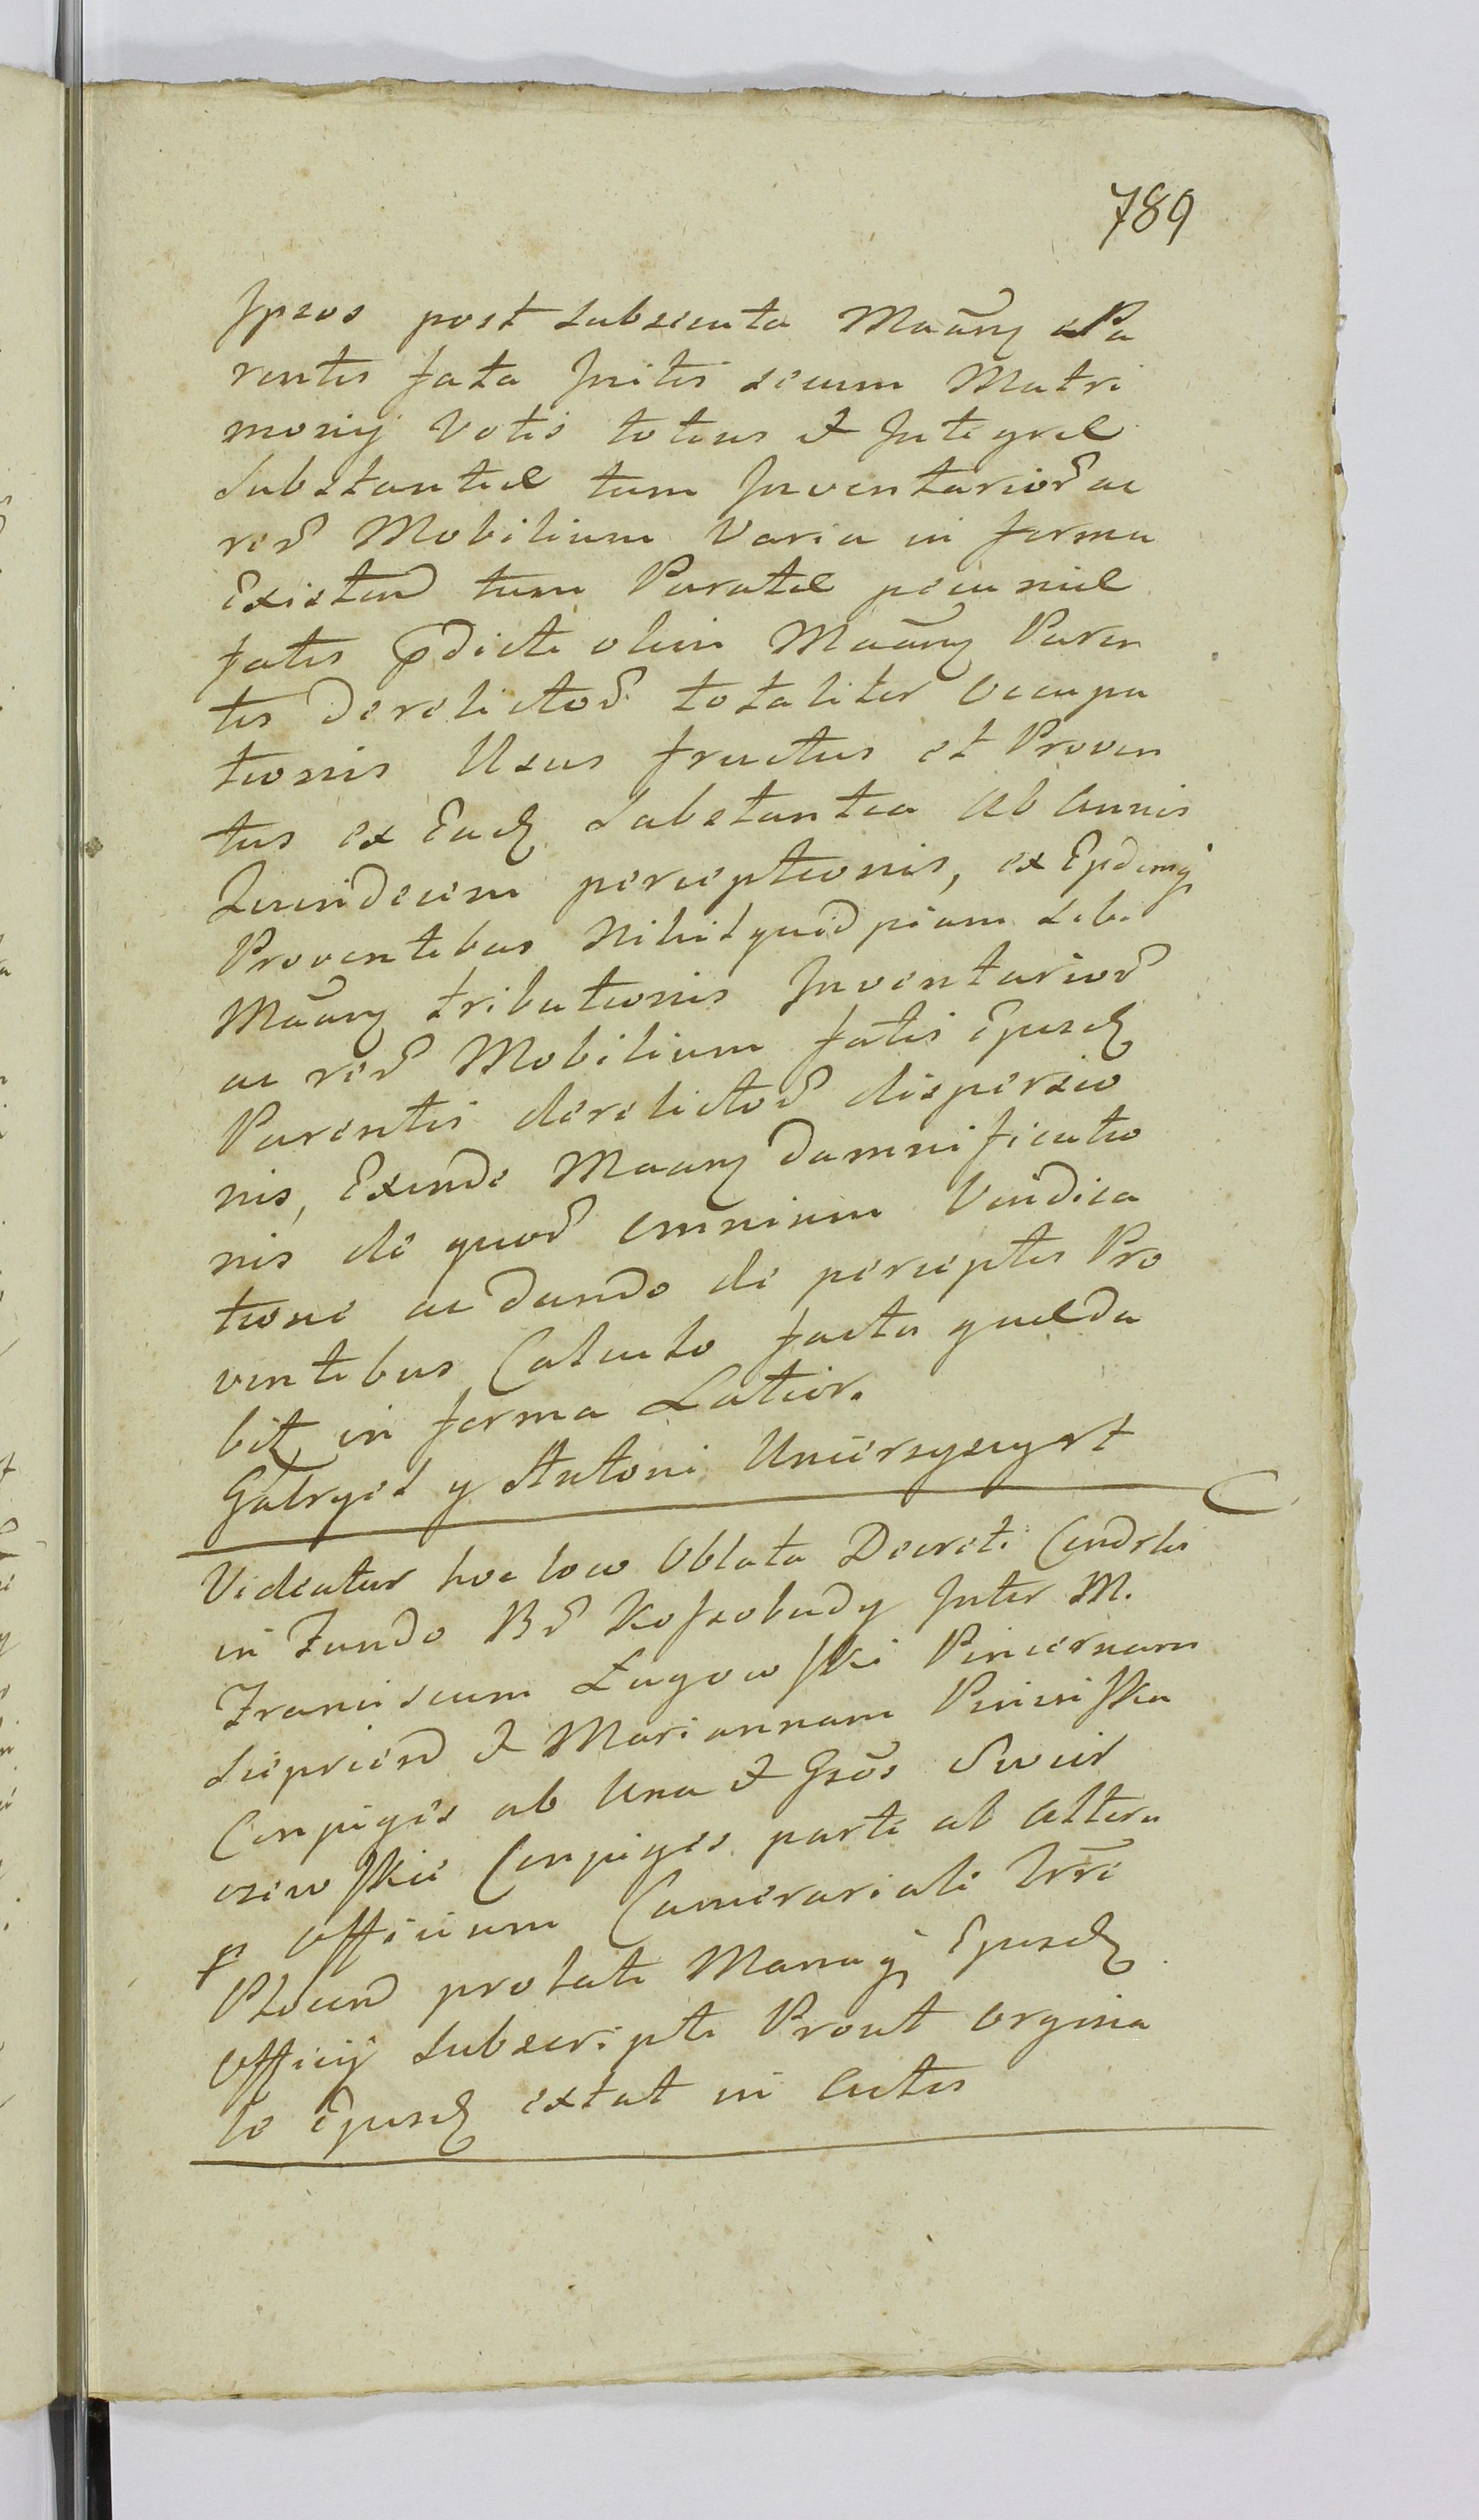 789
Ipsos post subsecuta Maãrz Pa
rentis fata Initis secum Matri
monij Votis totius et Integræ
Substantiæ tum Inventarior ac
rer Mobilium Varia in forma
Existen tum Paratæ pecuniæ
fatis pdicti olim Maãrz Paren
tis derelictor totaliter Occupa
tionis Usus fructus et Proven
tus ex Ead Substantia Ab Annis
Quindecem perceptionis, ex
Proventibus Nihilquidpiam Sibi
Maãrz tributionis Inventarior
ac rer Mobilium fatis Ejusd
Parentis derelictor dispersio
nis, Exinde Maarz damnificatio
nis de quor omnium Vindica
tione ac dando de perceptis Pro
ventibus Calculo facta quæda
bit in forma Latior.
Gabryel y Antoni Uniersyscyrt
Videatur hoc loco Oblata Decreti Condrlis
in Fundo Br Kossobudy Inter M.
Franciscum Łagowski Pincernam
Sieprcen et Mariannam Piwnska
Conjuges ab Una et Gsos Swier
czewskie Conjuges parte ab Altera
p Officium Camerariali Trrẽ
Plocen prolati Manuq Ejusd
Officij subscripti Prout orgina
le Ejusd extat in Actis